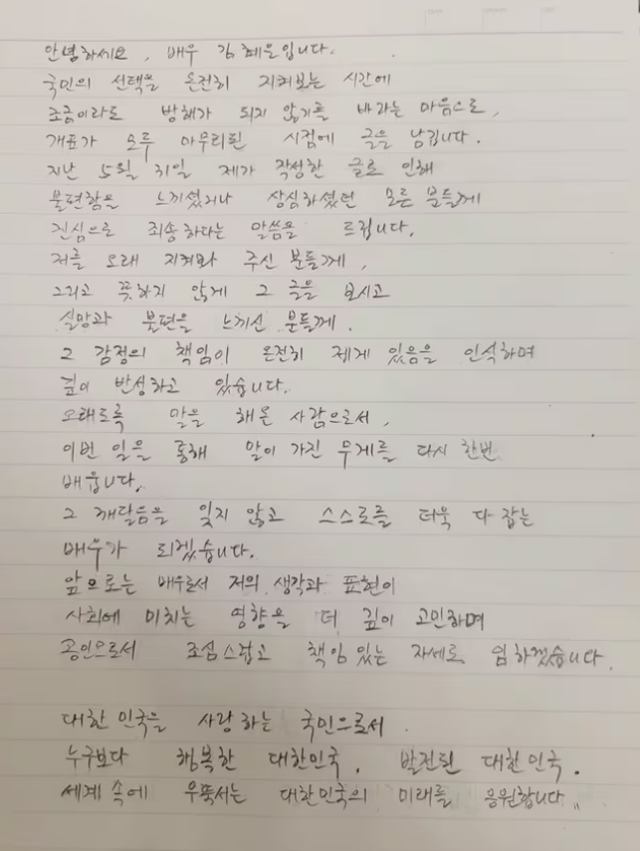 안녕하세요, 배우 김혜은입니다.
국민의 선택을 온전히 지켜보는 시간에
조금이라도 방해가 되지 않기를 바라는 마음으로,
개표가 모두 마무리된 시점에 글을 남깁니다.
지난 5월 31일 제가 작성한 글로 인해
불편함을 느끼셨거나 상심하셨던 모든 분들께
진심으로 죄송하다는 말씀을 드립니다.
저를 오래 지켜봐 주신 분들께,
그리고 뜻하지 않게 그 글을 보시고
실망과 불편을 느끼신 분들께.
그 감정의 책임이 온전히 제게 있음을 인식하며
깊이 반성하고 있습니다.
오래도록 말을 해온 사람으로서,
이번 일을 통해 말이 가진 무게를 다시 한번
배웁니다.
그 깨달음을 잊지 않고 스스로를 더욱 다 잡는
배우가 되겠습니다.
앞으로는 배우로서 저의 생각과 표현이
사회에 미치는 영향을 더 깊이 고민하며
공인으로서 조심스럽고 책임 있는 자세로 임하겠습니다.
대한민국을 사랑하는 국민으로서.
누구보다 행복한 대한민국, 발전된 대한민국.
세계 속에 우뚝서는 대한민국의 미래를 응원합니다..